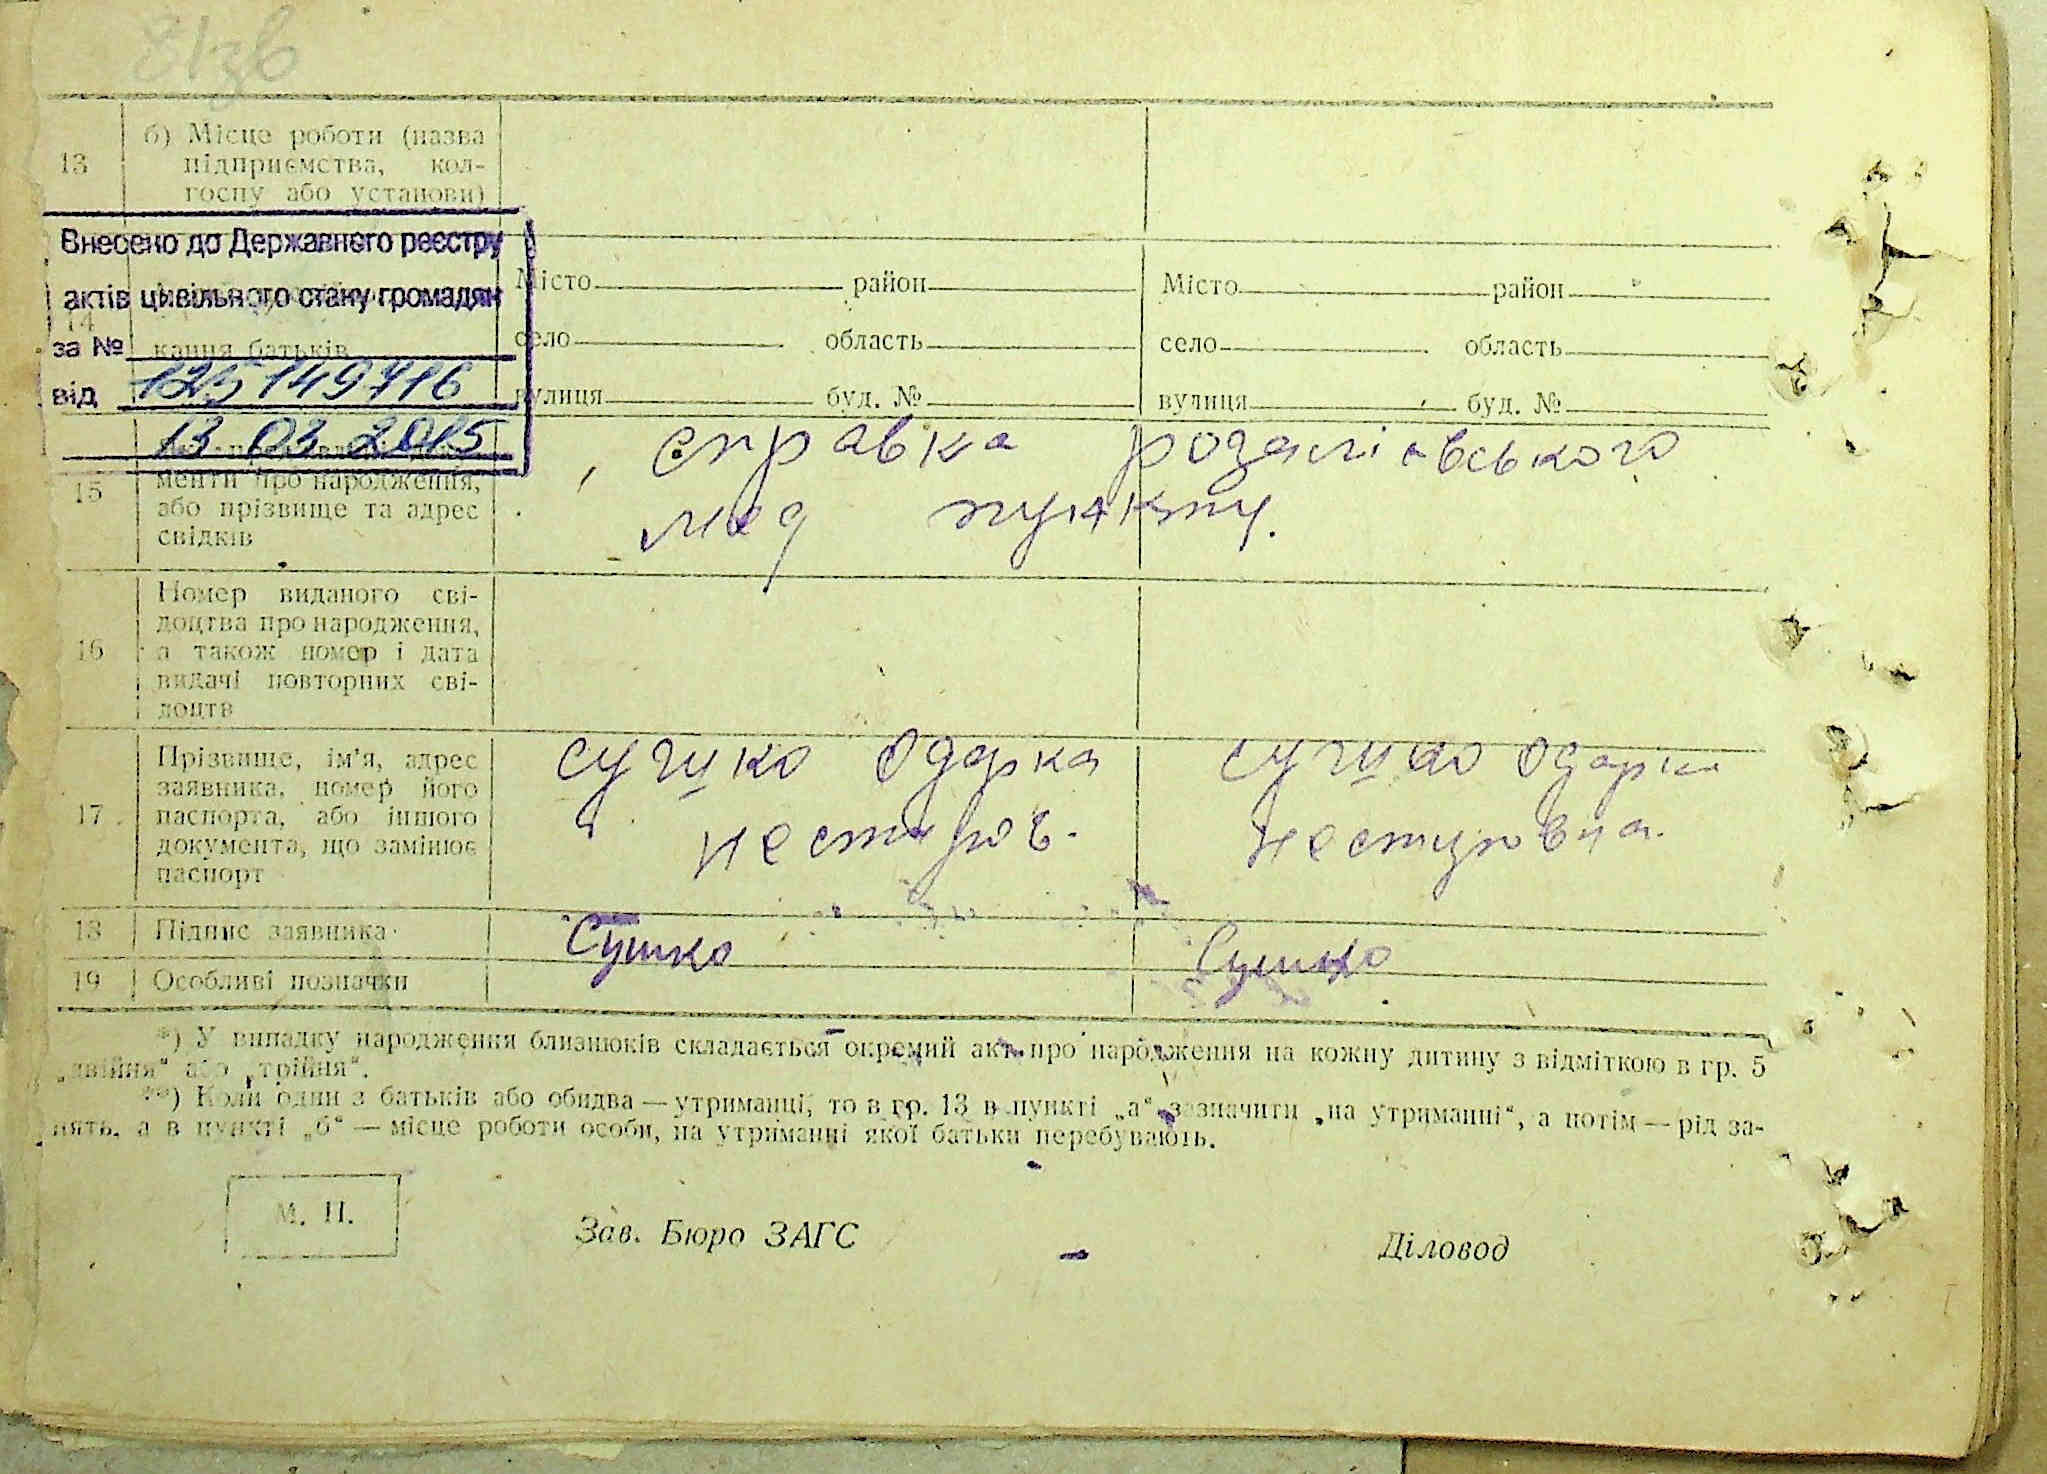 13
б) Місце роботи (назва
підприємства, кол-
госпу або установи)
Внесено до Державного реєстру
актів цивільного стану громадян
за №
125149716
від
13 03 2015
14
кання батьків
Місто район
село область
вулиця буд. №
Місто район
село область
вулиця буд. №
15
менти про народження,
або прізвище та адрес
свідків
справка розаліївського
мед пункту.
16
Номер виданого сві-
доцтва про народження,
а також номер і дата
видачі повторних сві-
доцтв
17
Прізвище, ім'я, адрес
заявника, номер його
паспорта, або іншого
документа, що замінює
паспорт
Сушко Одарка
Нестиров.
Сушко Одарка
Нестировна.
18 Підпис заявника
Сушко
Сушко
19 Особливі позначки
*) У випадку народження близнюків складається окремий акт про народження на кожну дитину з відміткою в гр. 5
„двійня“ або „трійня“.
**) Коли один з батьків або обидва — утриманці, то в гр. 13 в пункті „а“ зазначити „на утриманні“, а потім — рід за-
нять, а в пункті „б“ — місце роботи особи, на утриманні якої батьки перебувають.
М. П.
Зав. Бюро ЗАГС
Діловод